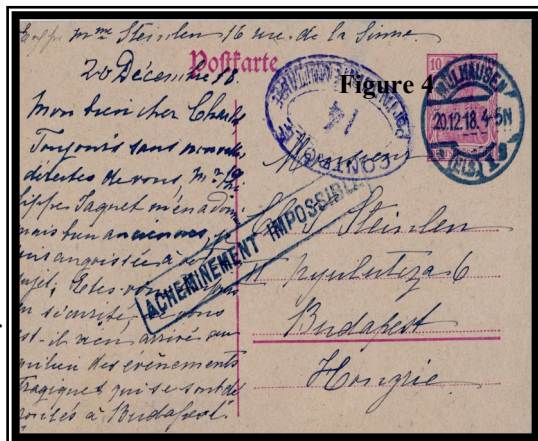 Exp. Mme Steinlen 16 rue de la Sinne
Postkarte
20 Décembre 18
Mon bien cher Charles
Toujours sans nouvelles
directes de vous, Mr
Jaquet m'en a donné
mais bien anciennes, je
suis angoissée à votre
sujet, Etes-vous
en sécurité, vous
est-il rien arrivé au
milieu des événements
tragiques qui se sont dé
roulés à Budapest
10
CONTROLE
14
Figure 4
MÜLHAUSEN
20.12.18. 4-5N
(ELS.)
Monsieur
Ch. Steinlen
6
Budapest
Hongrie
ACHEMINEMENT IMPOSSIBLE